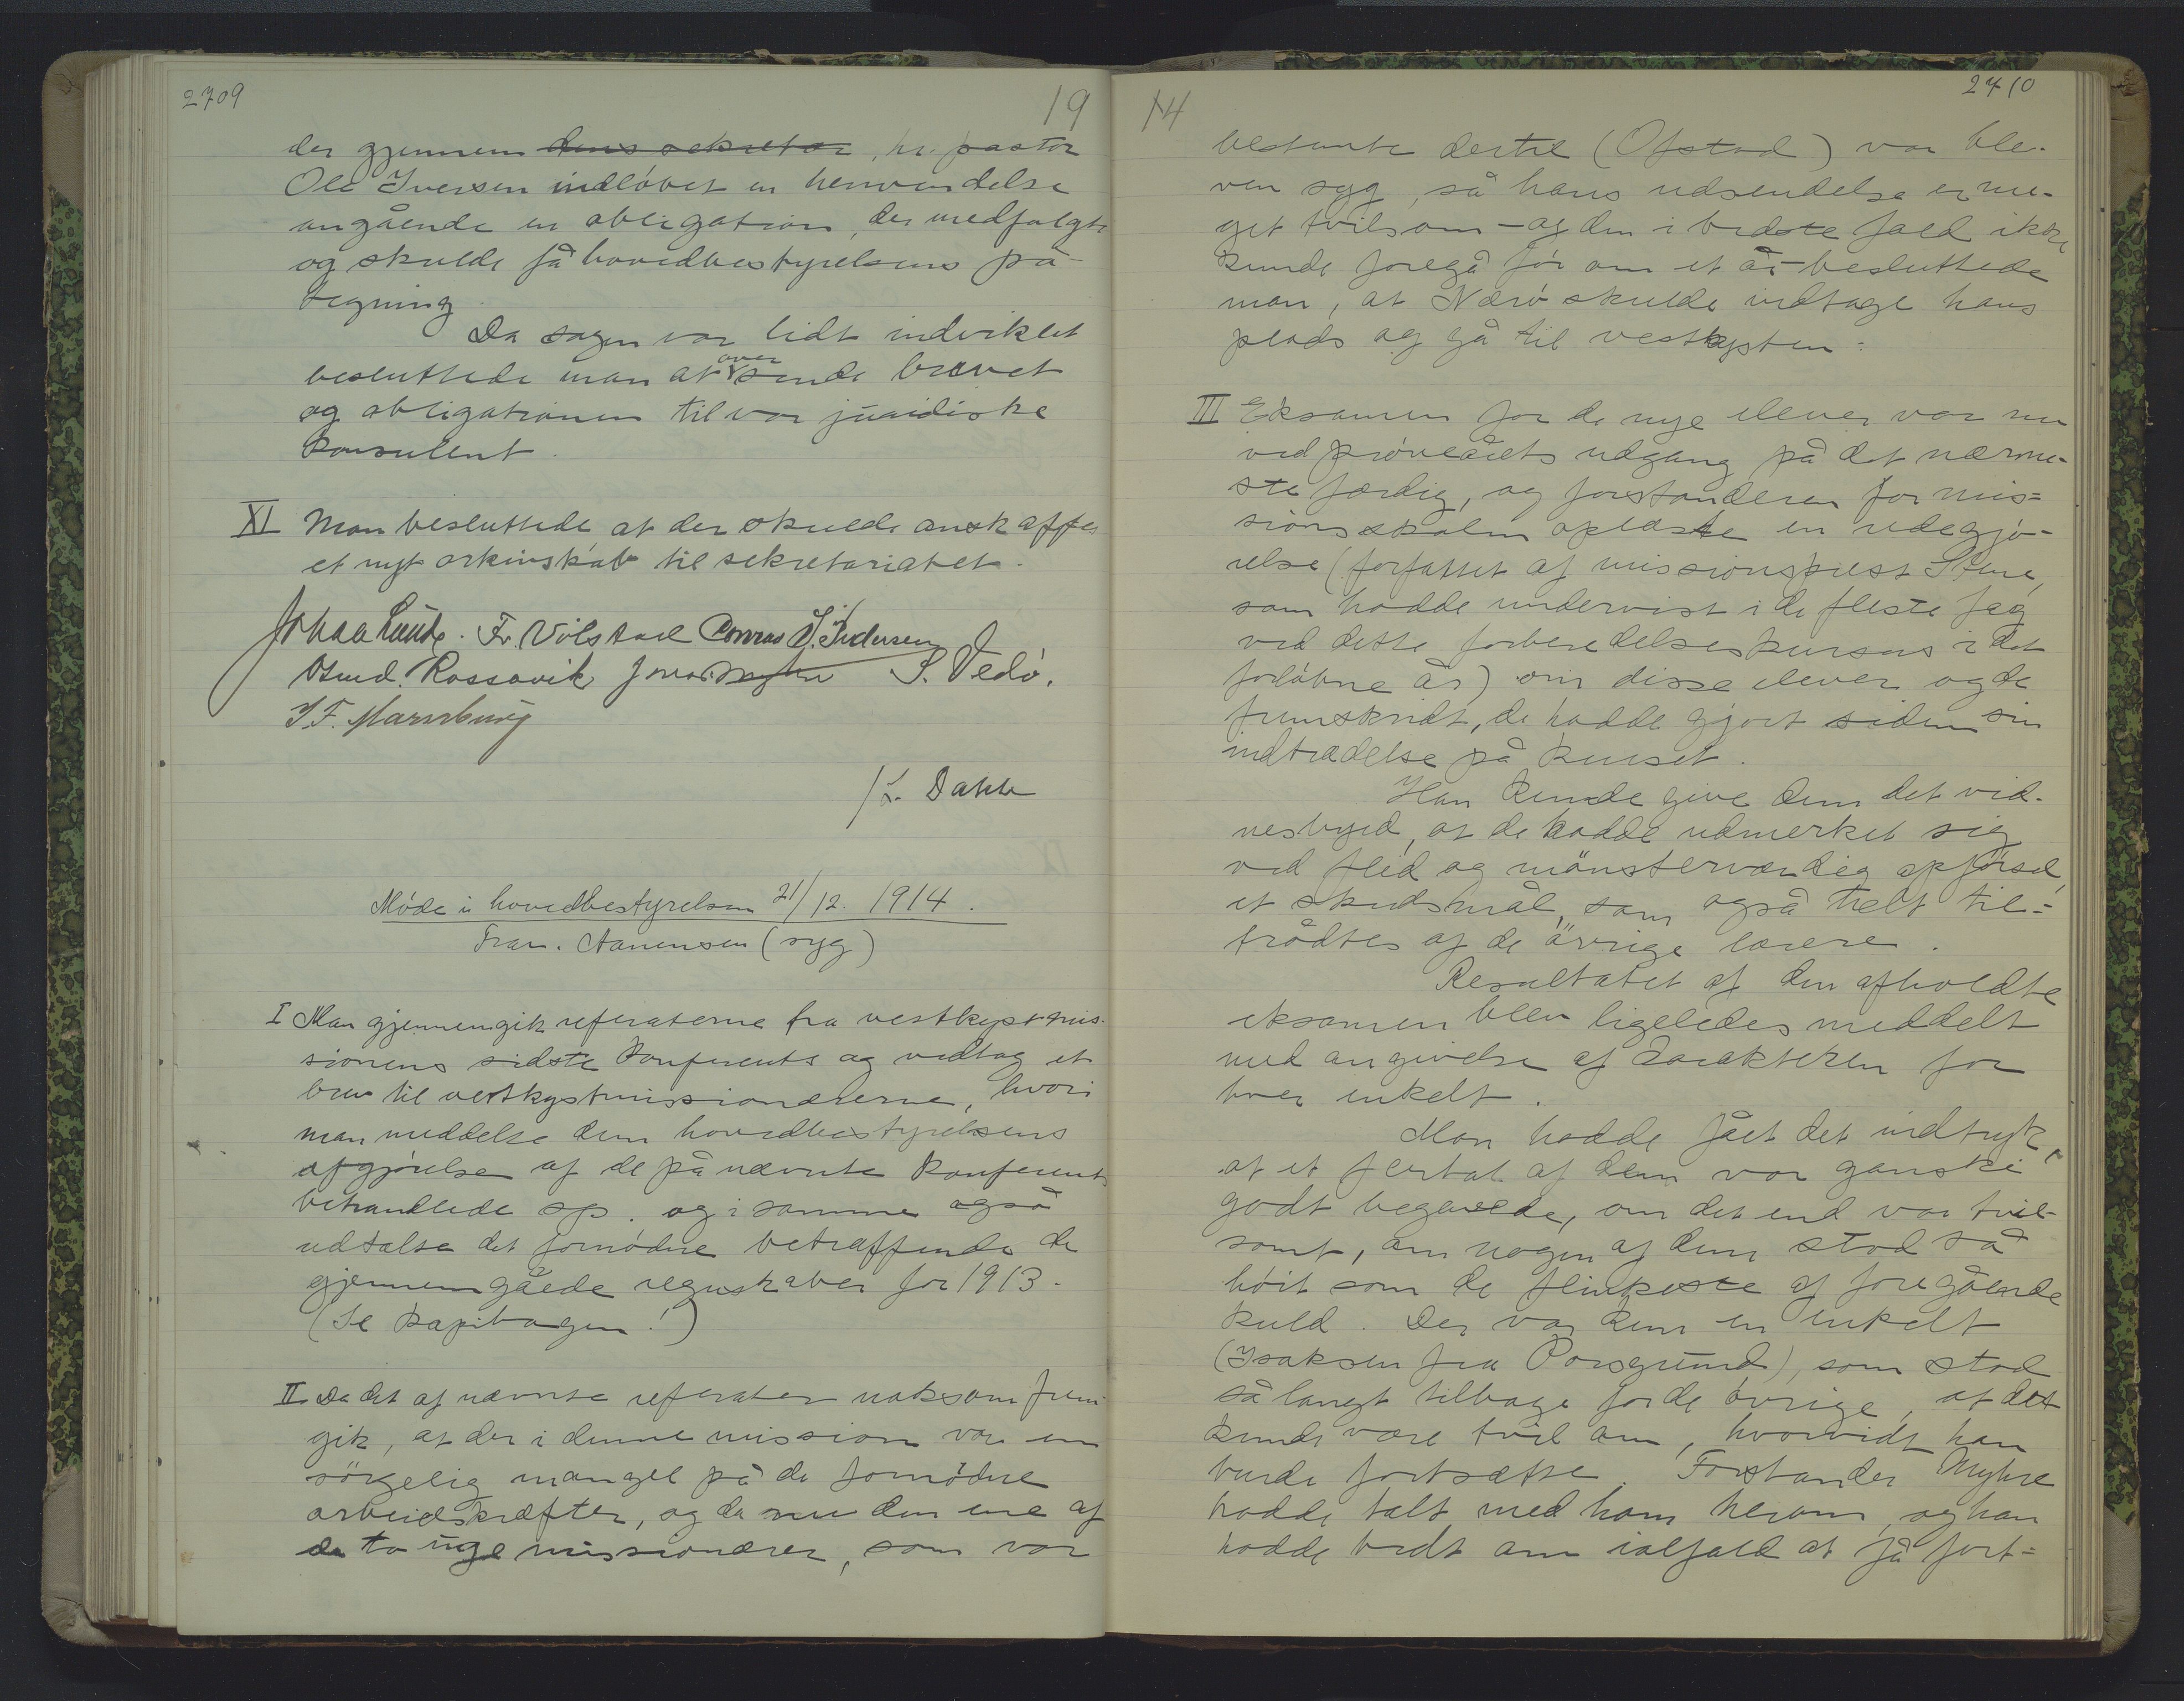 2709
19
der gjennem dens sekretær, hr. pastor
Ole Iversen indløbet en henvendelse
angående en obligation, der medfulgte
og skulde få hovedbestyrelsens på-
tegning.
Da sagen var lidt indviklet
besluttede man at over sende brevet
og obligationen til vor juridiske
konsulent.
XI Man besluttede at der skulde anskaffes
et nyt arkivskab til sekretariatet.
Johan Lunde. Fr. Vølstad Conrad J. Pedersen
Osmd. Rossavik Jonas Myhre S. Vedø.
J. F. Marnburg
/L. Dahle
Møde i hovedbestyrelsen 21/12. 1914.
Frav. Aanensen (syg)
I Man gjennemgik referaterne fra vestkystmis-
sionens sidste konferents og vedtog et
brev til vestkystmissionærerne, hvori
man meddelte dem hovedbestyrelsens
afgjørelse af de på nævnte konferents
behandlede sp. og i samme også
udtalte det fornødne betræffende de
gjennemgåede regnskaber for 1913.
(Se kopibogen!)
II Da det af nævnte referater noksom frem-
gik, at der i denne mission var en
sørgelig mangel på de fornødne
arbeidskræfter, og da nu den ene af
de to nye missionærer, som var
14
2710
bestemte dertil (Ofstad) var ble-
ven syg, så hans udsendelse er me-
get tvilsom - og den i bedste fald ikke
kunde foregå før om et år - besluttede
man, at Nærø skulde indtage hans
plads og gå til vestkysten.
III Eksamen for de nye elever var nu
ved prøveårets udgang på det nærme-
ste færdig, og forstanderen for mis-
sionsskolen oplæste en redegjø-
relse (forfattet af missionsprest Stene,
som hadde undervist i de fleste fag
ved dette forberedelseskursus i det
forløbne år) om disse elever og de
fremskridt, de hadde gjort siden sin
indtrædelse på kurset.
Han kunde give dem det vid-
nesbyrd, at de hadde udmerket sig
ved flid og mønsterværdig opførsel,
et skudsmål, som også helt til-
trådtes af de øvrige lærere.
Resultatet af den afholdte
eksamen blev ligeledes meddelt
med angivelse af karakteren for
hver enkelt.
Man hadde fået det indtryk,
at et flertal af dem var ganske
godt begavede, om det end var tvil-
somt, om nogen af dem stod så
høit som de flinkeste af foregående
kuld. Der var kun en enkelt
(Isaksen fra Porsgrund), som stod
så langt tilbage for de øvrige, at det
kunde være tvil om, hvorvidt han
burde fortsætte. Forstander Myhre
hadde talt med ham herom, og han
hadde bedt om ialfald at få fort-